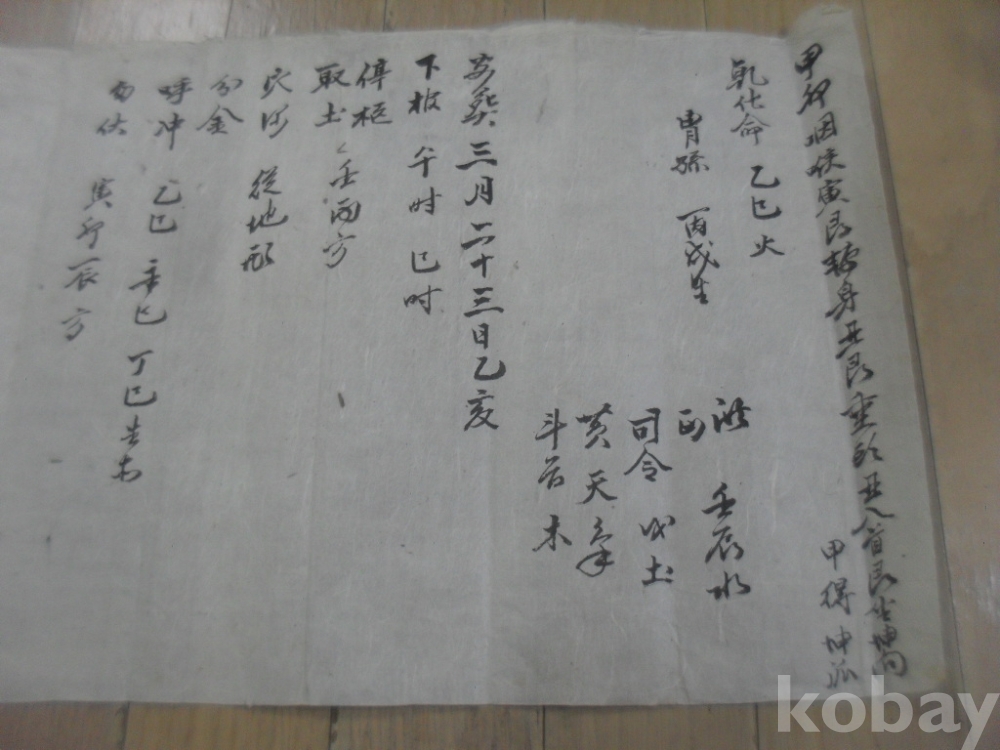 甲卯咽峽寅艮轉身丑艮 丑入首艮坐坤向
甲得坤派
乾仕命 乙巳火
胄孫 丙戌生
洪 壬辰水
司令 戊土
黃天
斗首木
安葬 三月二十三日乙亥
下棺 午時 巳時
停柩
取土 壬丙方
穴深 從地形
分金
呼冲 乙巳 辛巳 丁巳生
寅卯辰方
kobay